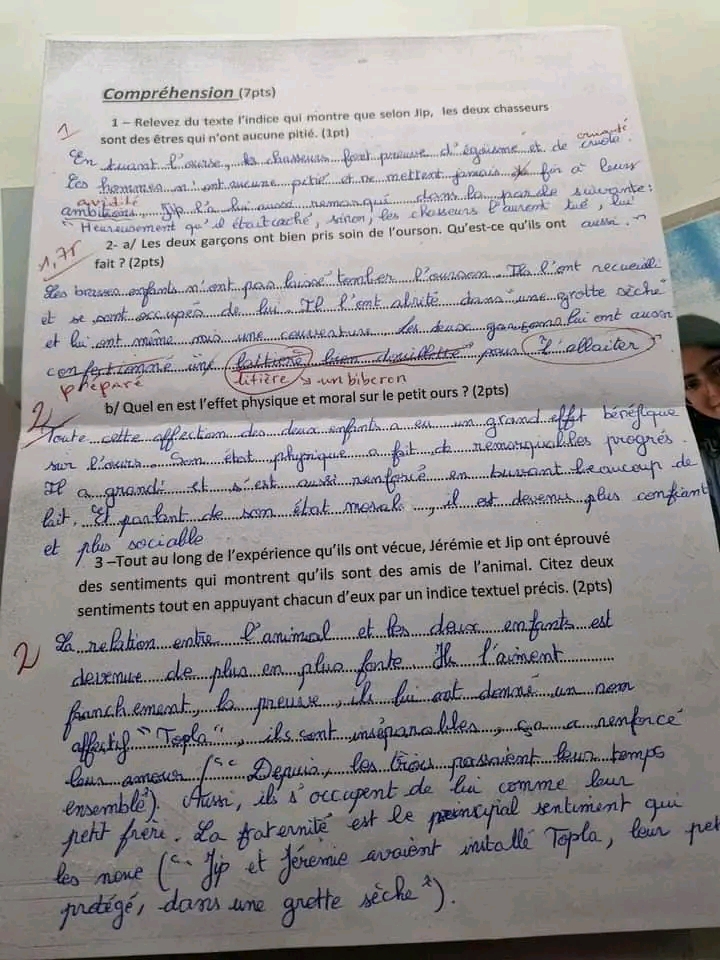 Compréhension (7pts)
1 – Relevez du texte l'indice qui montre que selon Jip, les deux chasseurs
sont des êtres qui n'ont aucune pitié. (1pt)
1
cruauté
En tuant l'ourse, les chasseurs font preuve d'égoïsme et de cruole.
Les hommes n'ont aucune pitié et ne mettent jamais fin à leurs
avidité
ambitions. Jip l'a lui aussi remarqué dans la parole suivante:
"Heureusement qu'il était caché, sinon, les chasseurs l'aurent tué, lui
aussi."
1,75
2- a/ Les deux garçons ont bien pris soin de l'ourson. Qu'est-ce qu'ils ont
fait ? (2pts)
Les braves enfants n'ont pas laissé tomber l'ourson. Ils l'ont recueilli
et se sont occupés de lui. Il l'ont abrité dans "une grotte sèche"
et lui ont même mis une couverture. Les deux garçons lui ont aussi
confectionné une lattiere bien douillette pour l'allaiter
préparé litière un biberon
b/ Quel en est l'effet physique et moral sur le petit ours ? (2pts)
2
Toute cette affection des deux enfants a eu un grand effet bénéfique
sur l'ours. Son état physique a fait de remarquables progrés.
Il a grandi et s'est aussi renforcé en buvant beaucoup de
lait. Et parlant de son état moral, il est devenu plus confiant
et plus sociable
3 –Tout au long de l'expérience qu'ils ont vécue, Jérémie et Jip ont éprouvé
des sentiments qui montrent qu'ils sont des amis de l'animal. Citez deux
sentiments tout en appuyant chacun d'eux par un indice textuel précis. (2pts)
2
La relation entre l'animal et les deux enfants est
devenue de plus en plus forte. Ils l'aiment
franchement, la preuve, ils lui ont donné un nom
affectif "Topla", ils sont inséparables, ça a renforcé
leur amour ("Depuis, les trois passaient leur temps
ensemble"). Aussi, ils s'occupent de lui comme leur
petit frère. La fraternité est le principal sentiment qui
les noue ("Jip et Jérémie avaient installé Topla, leur pet
protégé, dans une grotte sèche").